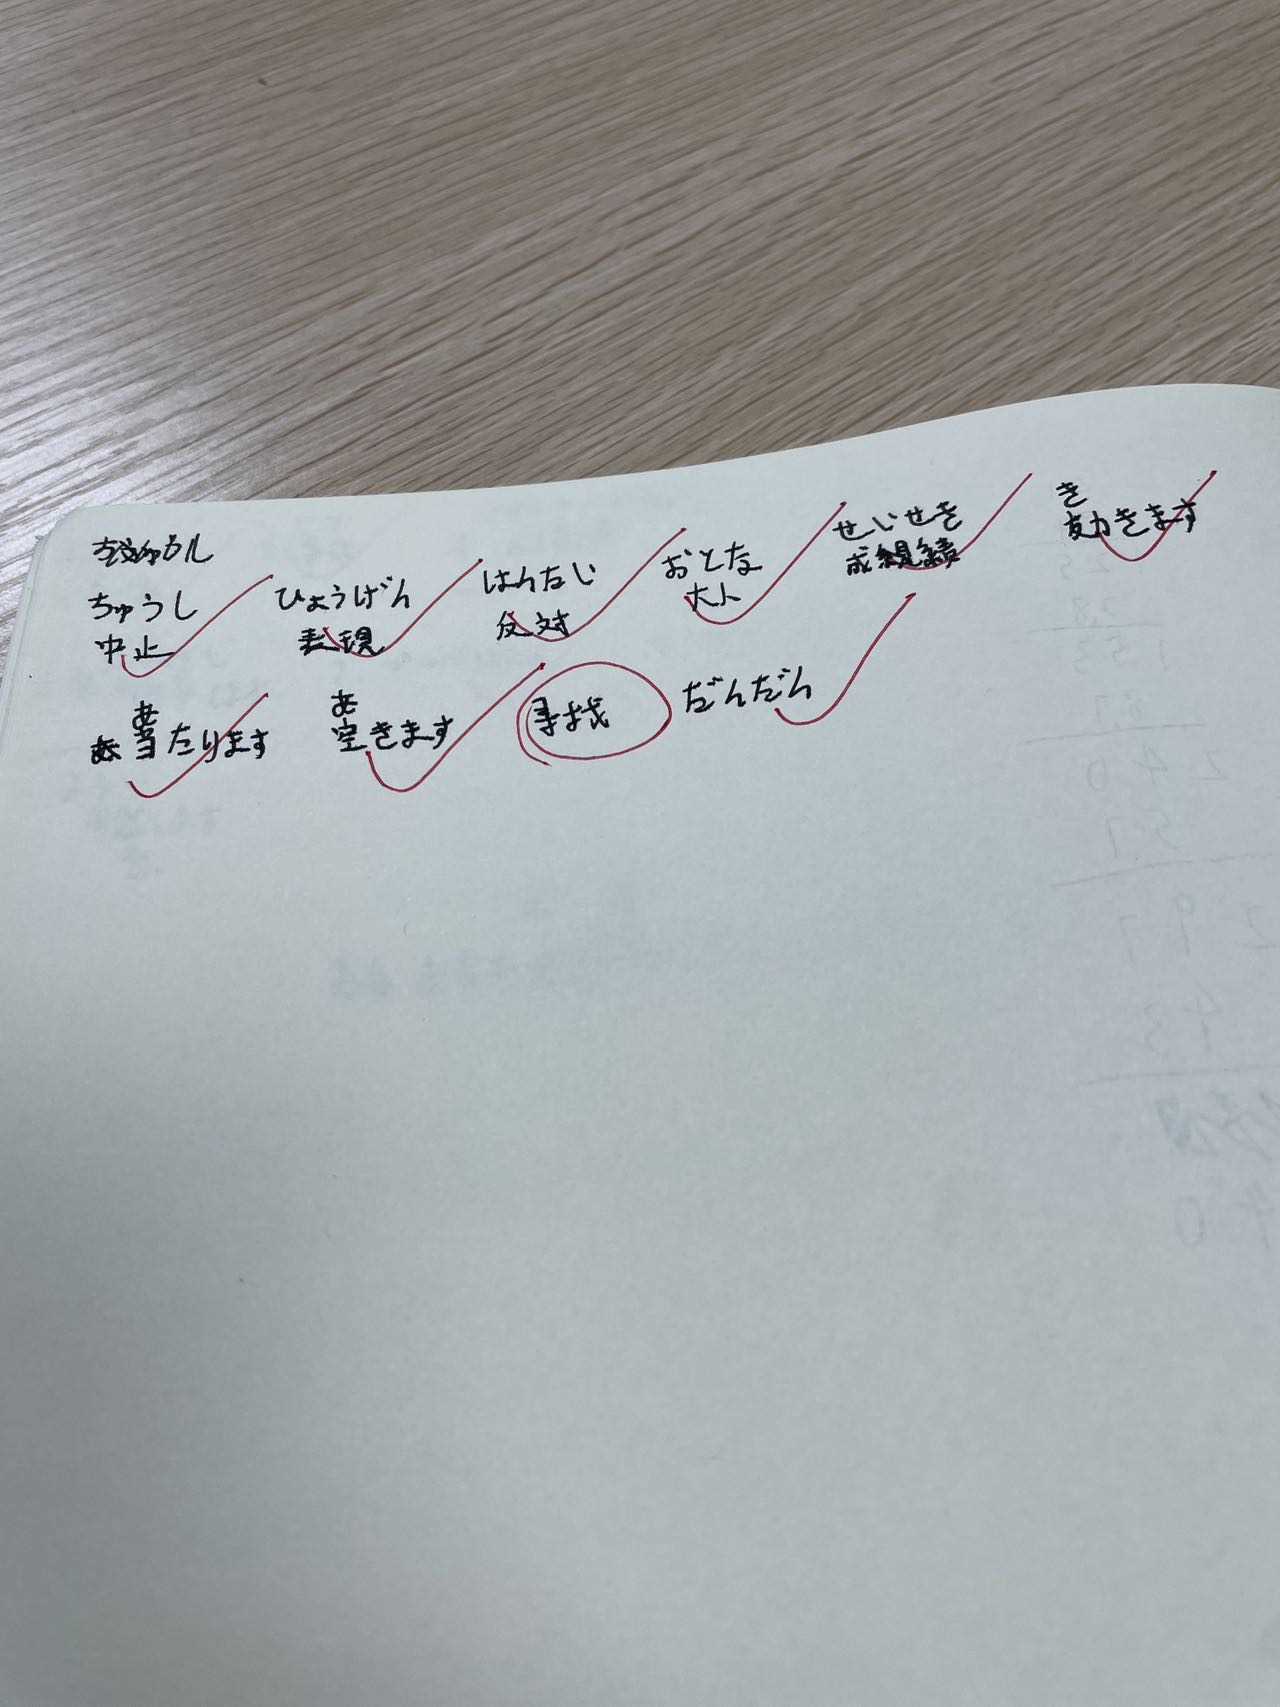 ちゅうし ひょうげん はんたい おとな せいせき き
中止 表現 反対 大人 成績 効きます
あ あ
当たります 空きます だんだん